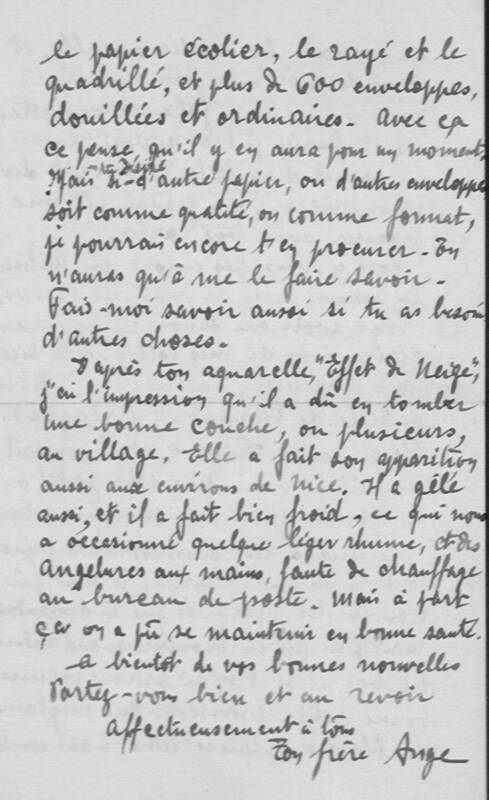 le papier écolier, le rayé et le
quadrillé, et plus de 600 enveloppes,
douillées et ordinaires. Avec ça
ce pense qu'il y en aura pour un moment.
Mais si tu désire d'autre papier, ou d'autres enveloppes
soit comme qualité, ou comme format,
je pourrais encore t'en procurer. Tu
n'auras qu'à me le faire savoir.
Fais-moi savoir aussi si tu as besoin
d'autres choses.
D'après ton aquarelle, "Effet de Neige",
j'ai l'impression qu'il a dû en tomber
une bonne couche, ou plusieurs,
au village. Elle a fait son apparition
aussi aux environs de Nice. Il a gêlé
aussi, et il a fait bien froid, ce qui nous
a occasionné quelque léger rhume, et des
angelures aux mains, faute de chauffage
au bureau de poste. Mais à part
ça on a pû se maintenir en bonne santé.
A bientôt de vos bonnes nouvelles
Portez-vous bien et au revoir
Affectueusement à tous
Ton frère Ange